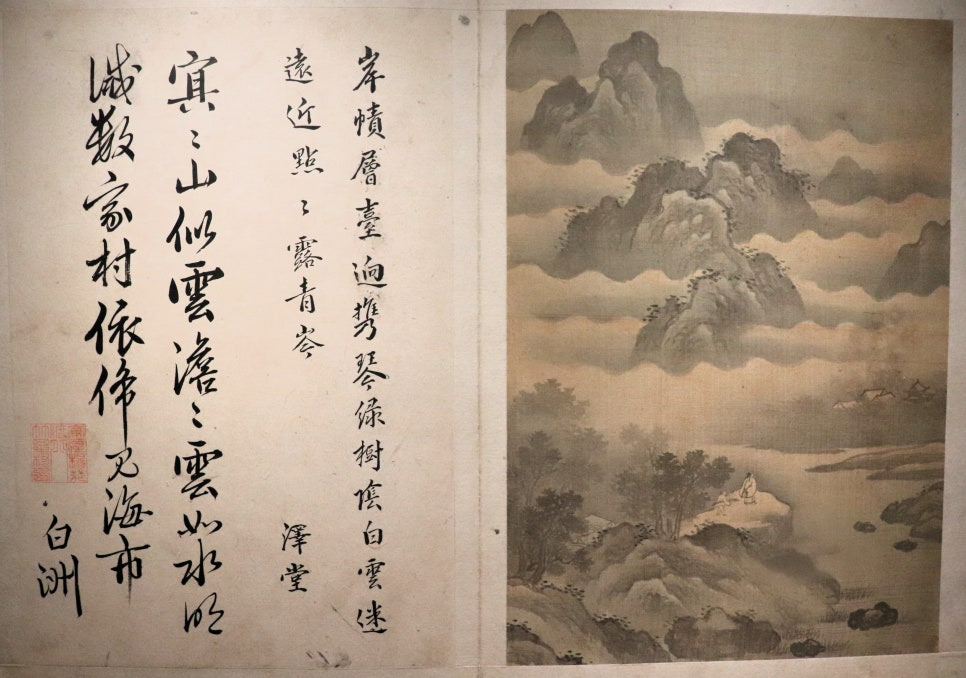 岸幘層臺逈携琴緑樹陰白雲迷
遠近點〻露青岑
澤堂
冥〻山似雲澹〻雲如水明
滅数家村依俙見海市
白洲